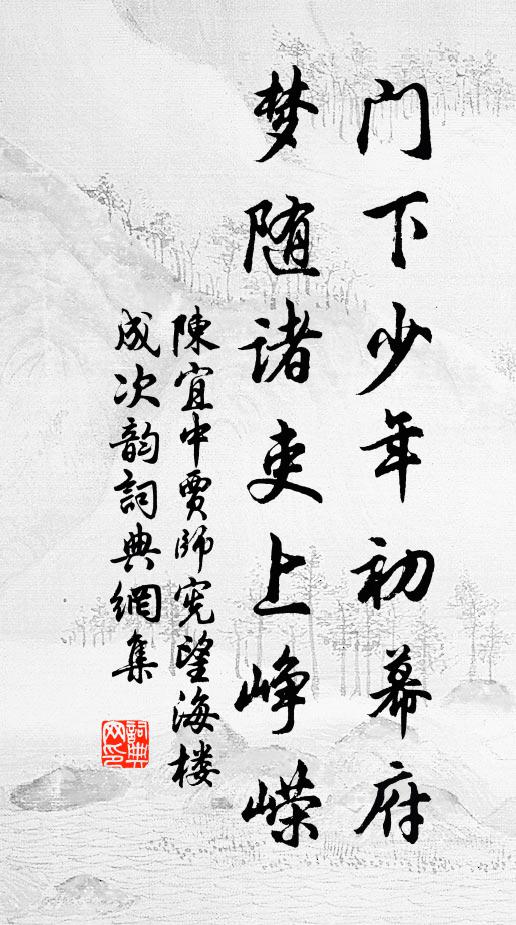 门下少年初幕府
梦随诸吏上峥嵘
陳宜中賈师宪望海楼
成次韵詞典網集
詞典网印